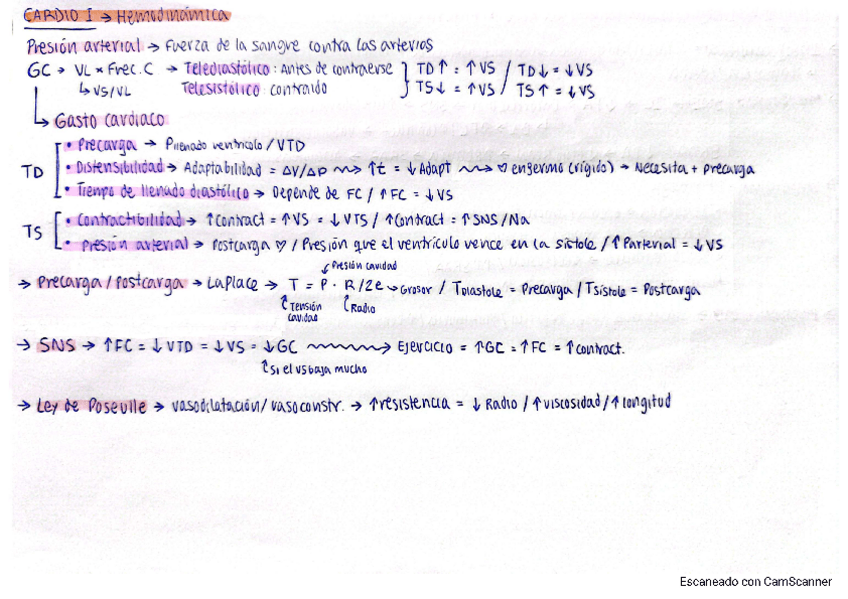 CARDIO I → Hemodinámica
Presión arterial → Fuerza de la sangre contra las arterias
GC → VL × Frec. C → Telediastólico: Antes de contraerse } TD↑ = ↑VS / TD↓ = ↓VS
↳ VS/VL Telesistólico: contraido } TS↓ = ↑VS / TS↑ = ↓VS
↳ Gasto cardiaco
TD [ • Precarga → P llenado ventrículo / VTD
• Distensibilidad → Adaptabilidad = ΔV/Δp ⟿ ↑t = ↓Adapt ⟿ ♡ enfermo (rígido) → Necesita + precarga
• Tiempo de llenado diastólico → Depende de FC / ↑FC = ↓VS
TS [ • Contractibilidad → ↑contract = ↑VS = ↓VTS / ↑contract = ↑SNS/Na
• Presión arterial → Postcarga ♡ / Presión que el ventrículo vence en la sístole / ↑Parterial = ↓VS
↙ Presión cavidad
→ Precarga / Postcarga → LaPlace → T = P · R/2e → Grosor / Tdiástole = Precarga / Tsístole = Postcarga
↑ Tensión cavidad ↑ Radio
→ SNS → ↑FC = ↓VTD = ↓VS = ↓GC ⟿ Ejercicio = ↑GC = ↑FC = ↑contract.
↑ Si el VS baja mucho
→ Ley de Poseuille → vasodilatación / vasoconstr. → ↑resistencia = ↓Radio / ↑viscosidad / ↑longitud
Escaneado con CamScanner